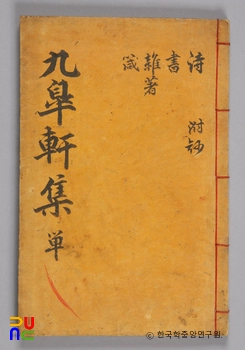 詩 附
書
雜著
箴
九皐軒集 単
© 한국학중앙연구원